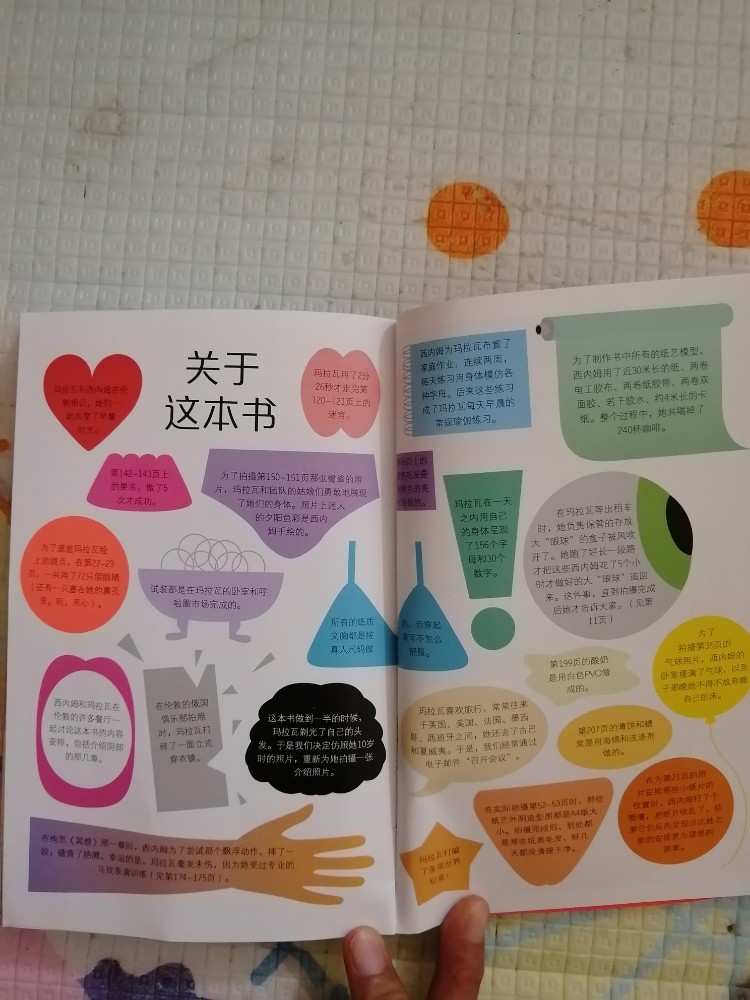 关于
这本书
玛拉瓦和西内姆在伦
敦相识，她们一
起共度了早餐
时光。
玛拉瓦用了2分
26秒才走完第
120-121页上的
迷宫。
第142-143页上
的果冻，做了5
次才成功。
为了拍摄第150-151页那张臀部的照
片，玛拉瓦和团队的姑娘们勇敢地展现
了她们的身体。照片上迷人
的夕阳色彩是西内
姆手绘的。
为了遮盖玛拉瓦脸
上的斑点，在第22-23
页，一共用了72只假眼睛
（还有一只塞在她的鼻孔
里。呃，恶心）。
试装都是在玛拉瓦的卧室和可
啦圈市场完成的。
所有的纸质
文胸都是按
真人尺码做
西内姆和玛拉瓦在
伦敦的许多餐厅一
起讨论这本书的内容
安排，包括介绍阴部
的那几章。
在伦敦的俄国
俱乐部拍照
时，玛拉瓦打
碎了一面立式
穿衣镜。
这本书做到一半的时候，
玛拉瓦剃光了自己的头
发。于是我们决定仿照她10岁
时的照片，重新为她拍摄一张
介绍照片。
在构思《冥想》那一章时，西内姆为了尝试那个飘浮动作，摔了一
跤，磕青了胳膊。幸运的是，玛拉瓦毫发未伤，因为她受过专业的
马戏表演训练（见第174-175页）。
西内姆为玛拉瓦布置了
家庭作业：连续两周，
每天练习用身体模仿各
种字母。后来这些练习
成了玛拉瓦每天早晨的
常规瑜伽练习。
为了制作书中所有的纸艺模型，
西内姆用了近30米长的纸、两卷
电工胶布、两卷纸胶带、两卷双
面胶、若干胶水、约4米长的卡
纸。整个过程中，她共喝掉了
240杯咖啡。
玛拉瓦在一天
之内用自己
的身体呈现
了156个字
母和30个
数字。
在玛拉瓦等出租车
时，她负责保管的存放
大“眼球”的盒子被风吹
开了。她跑了好长一段路
才把这些西内姆花了5个小
时才做好的大“眼球”追回
来。这件事，直到拍摄完成
后她才告诉大家。（见第
11页）
的，但穿起
来可不怎么
舒服。
第199页的酸奶
是用白色PVC做
成的。
为了
拍摄第35页的
气球照片，西内姆的
卧室摆满了气球，以至
于那晚她不得不放弃睡
自己的床。
玛拉瓦喜欢旅行，常常往来
于英国、美国、法国、墨西
哥、西班牙之间，她还去了古巴
和夏威夷。于是，我们经常通过
电子邮件“召开会议”。
第207页的薄饼和糖
浆是用海绵和洗涤剂
做的。
在实际拍摄第52-53页时，那些
纸艺外阴造型图都是A4纸大
小。拍摄完成后，到处都
是那些纸质毛发，好几
天都没清理干净。
在为第21页的照
片安排那些小纸片的
位置时，西内姆打了个
喷嚏，把纸片吹乱了，结
果它们反而呈现出比她之
前的安排更为理想的
图案。
玛拉瓦打破
了多项世界
纪录！